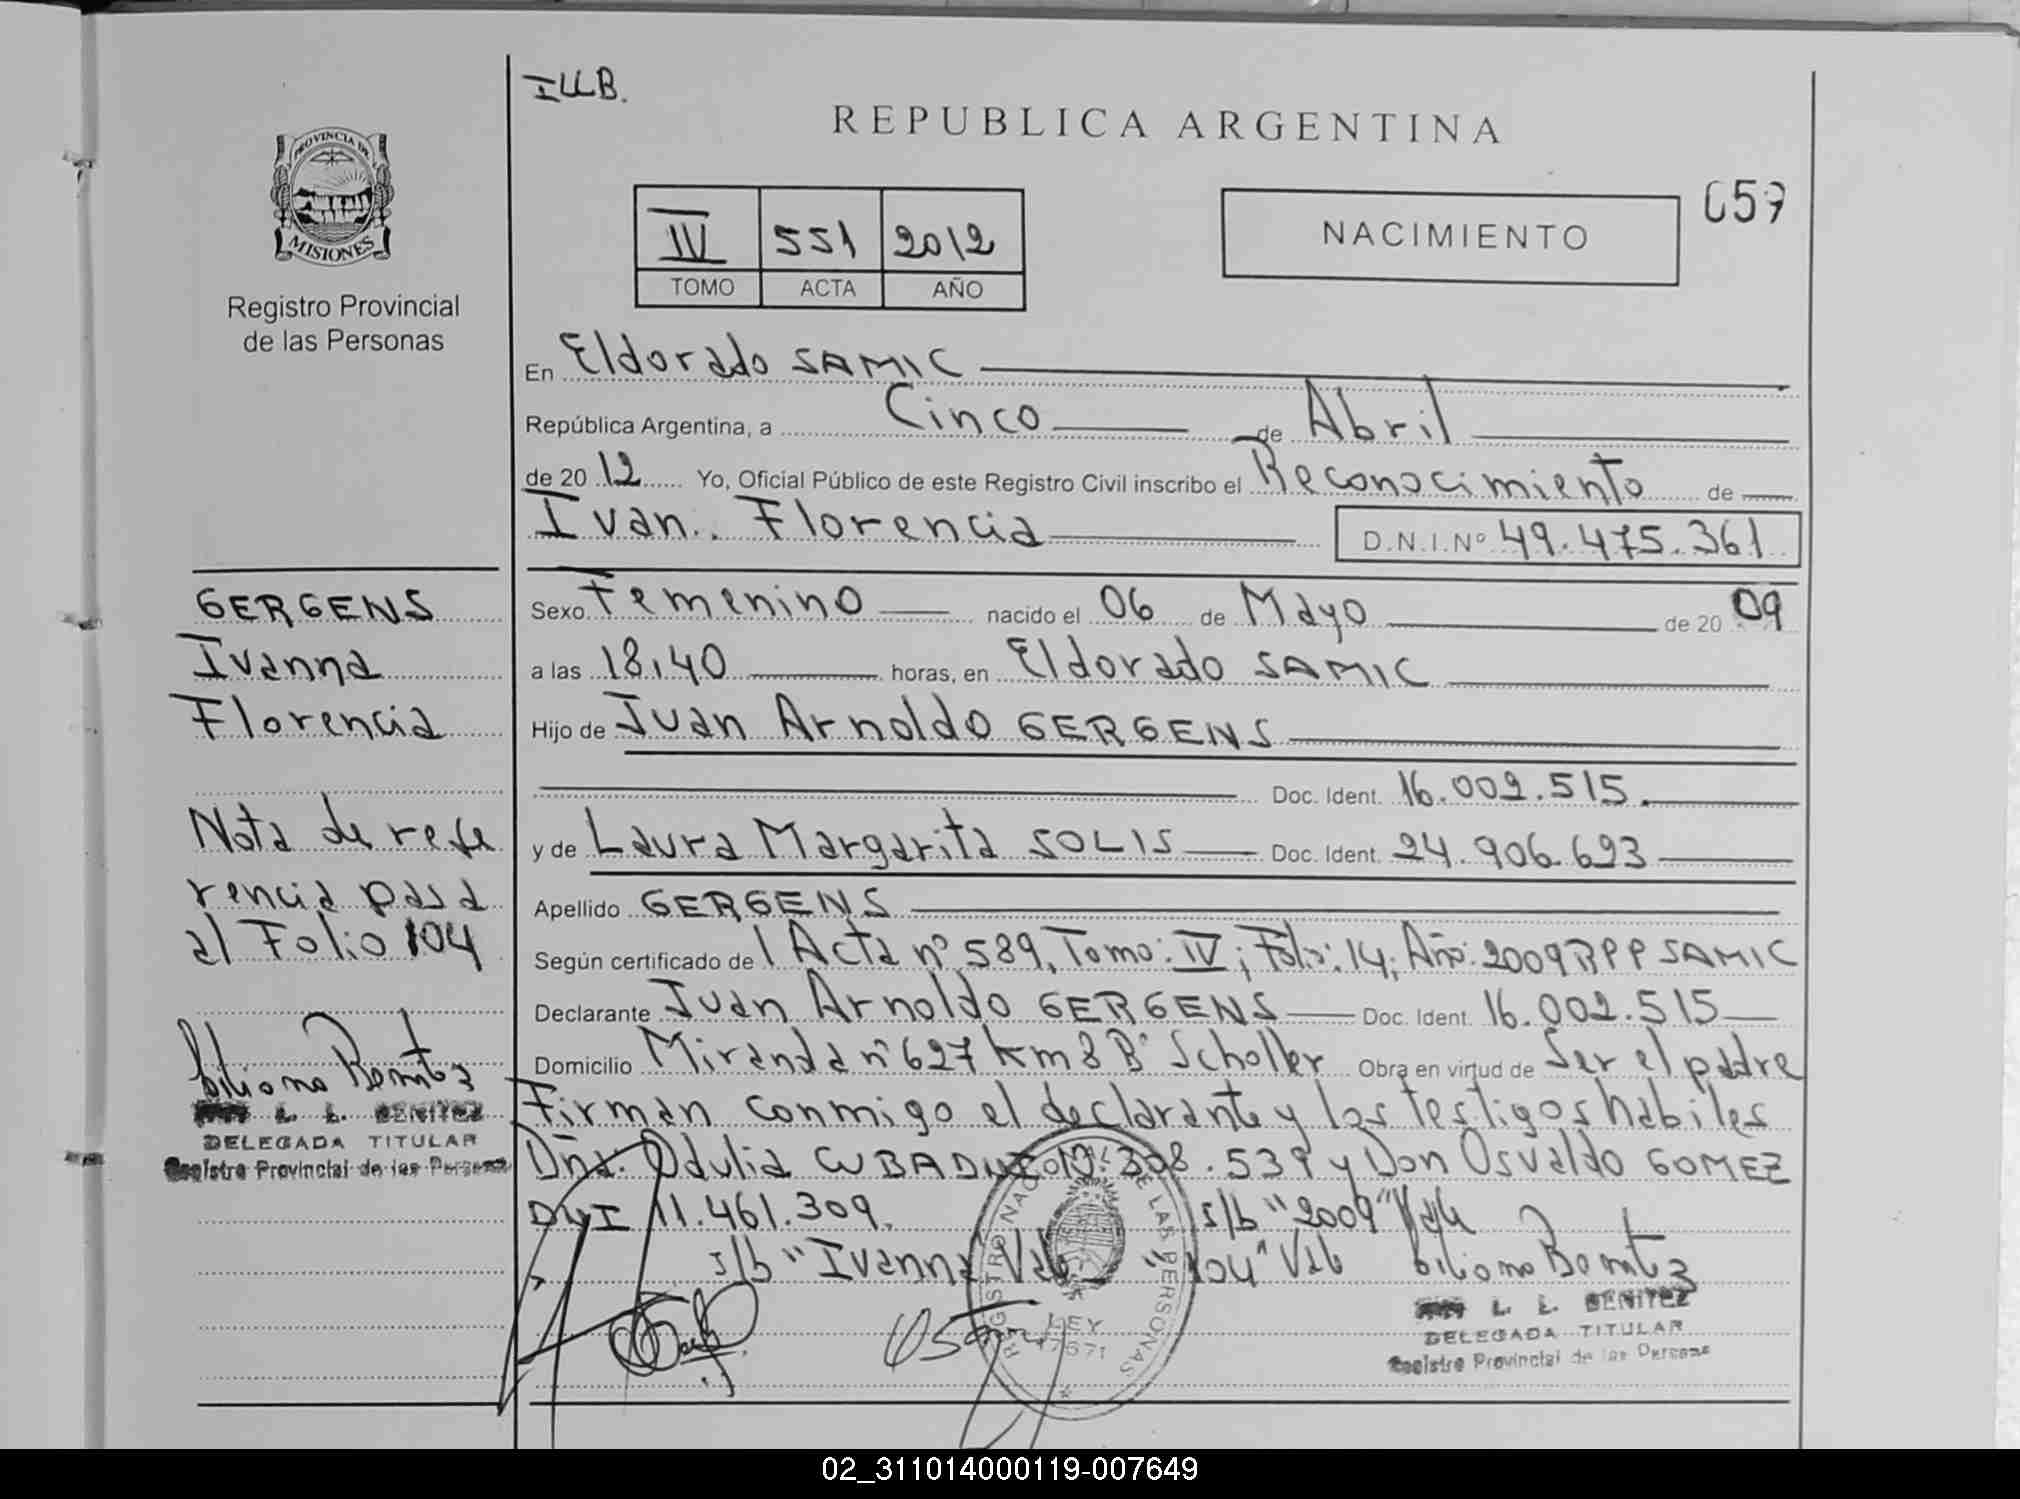 ILLB.
REPUBLICA ARGENTINA
PROVINCIA DE
MISIONES
Registro Provincial
de las Personas
IV 551 2012
TOMO ACTA AÑO
NACIMIENTO
059
En Eldorado SAMIC
República Argentina, a Cinco de Abril
de 20 12 Yo, Oficial Público de este Registro Civil inscribo el Reconocimiento de
Ivan.. Florencia D.N.I.Nº 49.475.361
GERGENS
Ivanna
Florencia
Nota de refe
rencia pasa
al Folio 104
Sexo Femenino nacido el 06 de Mayo de 20 09
a las 18,40 horas, en Eldorado SAMIC
Hijo de Juan Arnoldo GERGENS
Doc. Ident. 16.002.515.
y de Laura Margarita SOLIS Doc. Ident. 24.906.693
Apellido GERGENS
Según certificado de 1 Acta nº 589, Tomo: IV; Folio: 14; Año: 2009 RPP SAMIC
Declarante Juan Arnoldo GERGENS Doc. Ident. 16.002.515
Domicilio Miranda nº 627 Km 8 Bº Scholler Obra en virtud de Ser el padre
Firman conmigo el declarante y los testigos habiles
Dña. Odulia CUBA DNI 308.539 y Don Osvaldo GOMEZ
DNI 11.461.309. s/b "2009" Vale
s/b "Ivanna" Vale "104" Vale
L. L. BENITEZ
DELEGADA TITULAR
Registro Provincial de las Personas
REGISTRO NACIONAL DE LAS PERSONAS
LEY
17671
L. L. BENITEZ
DELEGADA TITULAR
Registro Provincial de las Personas
02_311014000119-007649